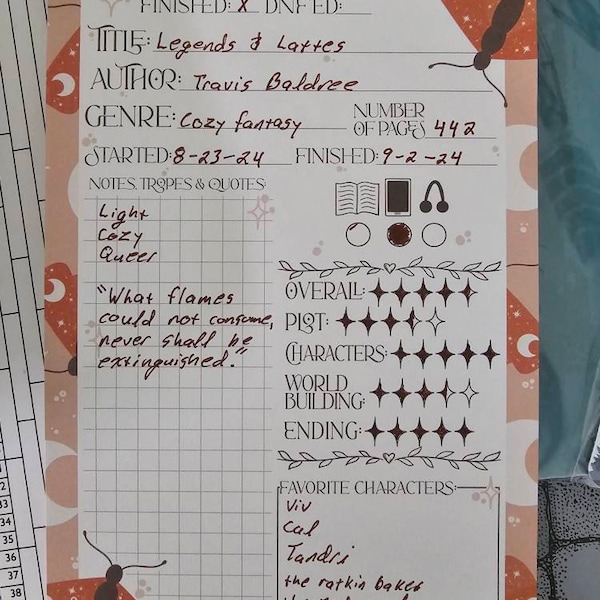 FINISHED: X DNF'ED:
TITLE: Legends & Lattes
AUTHOR: Travis Baldree
GENRE: Cozy fantasy NUMBER OF PAGES 442
STARTED: 8-23-24 FINISHED: 9-2-24
NOTES, TROPES & QUOTES:
Light
Cozy
Queer
"What flames
could not consume,
never shall be
extinguished."
OVERALL:
PLOT:
CHARACTERS:
WORLD
BUILDING:
ENDING:
FAVORITE CHARACTERS:
Viv
Cal
Tandri
the ratkin baker
33
34
35
36
37
38